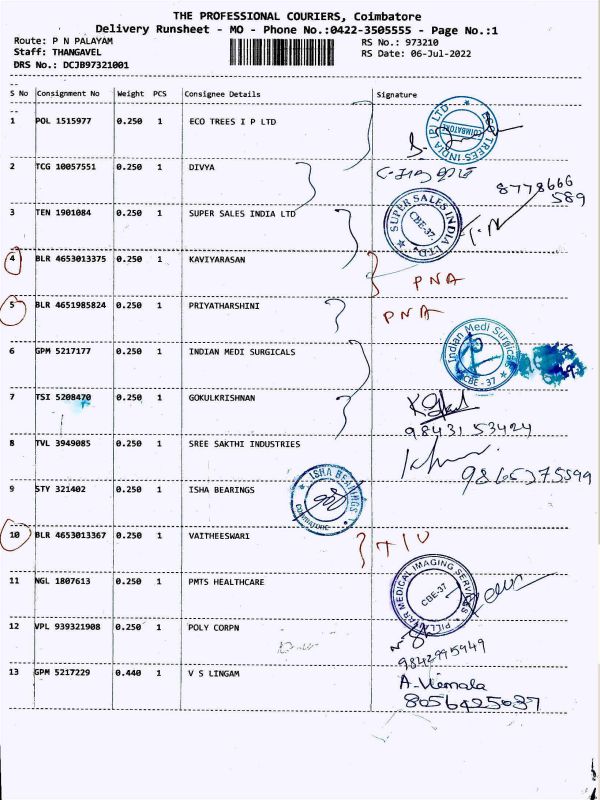 THE PROFESSIONAL COURIERS, Coimbatore
Delivery Runsheet - MO - Phone No.:0422-3505555 - Page No.:1
Route: P N PALAYAM RS No.: 973210
Staff: THANGAVEL RS Date: 06-Jul-2022
DRS No.: DCJB97321001
S No Consignment No Weight PCS Consignee Details Signature
1 POL 1515977 0.250 1 ECO TREES I P LTD
ECO TREES INDIA (P) LTD COIMBATORE
2 TCG 10057551 0.250 1 DIVYA
8778666
589
3 TEN 1901084 0.250 1 SUPER SALES INDIA LTD
SUPER SALES INDIA LTD. CBE-37.
4 BLR 4653013375 0.250 1 KAVIYARASAN
PNA
5 BLR 4651985824 0.250 1 PRIYATHARSHINI PNA
6 GPM 5217177 0.250 1 INDIAN MEDI SURGICALS
Indian Medi Surgicals CBE - 37
7 TSI 5208470 0.250 1 GOKULKRISHNAN
98431 53424
8 TVL 3949085 0.250 1 SREE SAKTHI INDUSTRIES
9865375599
9 STY 321402 0.250 1 ISHA BEARINGS
ISHA BEARINGS COIMBATORE
10 BLR 4653013367 0.250 1 VAITHEESWARI
11 NGL 1807613 0.250 1 PMTS HEALTHCARE
PILLAR MEDICAL IMAGING SERVICES CBE-37
12 VPL 939321908 0.250 1 POLY CORPN
9842995949
13 GPM 5217229 0.440 1 V S LINGAM
A. Vemala
8056425037